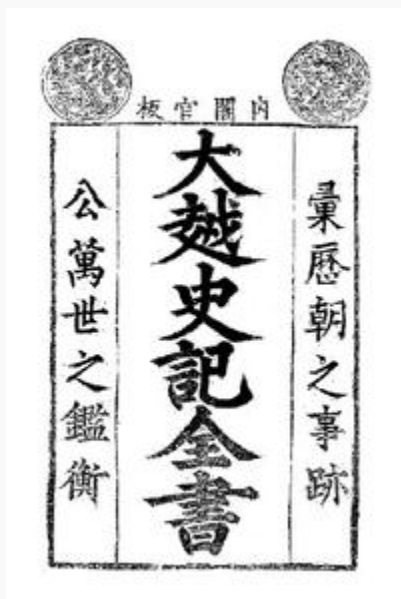 内閣官板
彙歷朝之事跡
大越史記全書
公萬世之鑑衡